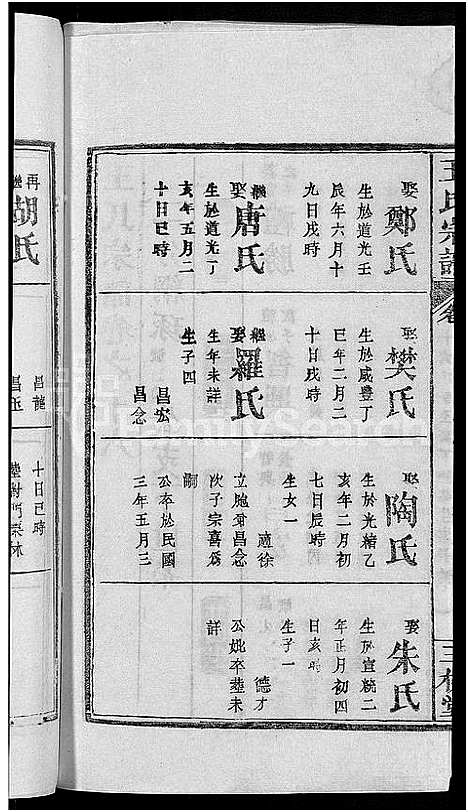 王氏宗譜
三槐堂
娶鄭氏
生於道光壬
辰年六月十
九日戌時
繼娶唐氏
生於道光丁
亥年五月二
十日巳時
娶樊氏
生於咸豐丁
巳年二月二
十日戌時
繼娶羅氏
生年未詳
生子四
昌宏
昌念
娶陶氏
生於光緒乙
亥年二月初
七日辰時
生女一
適徐
立胞弟昌念
次子宗喜為
嗣
公卒於民國
三年五月三
娶朱氏
生於宣統二
年正月初四
日亥時
生子一
德才
公妣卒塟未
詳
再繼胡氏
昌龍
昌玉
十日巳時